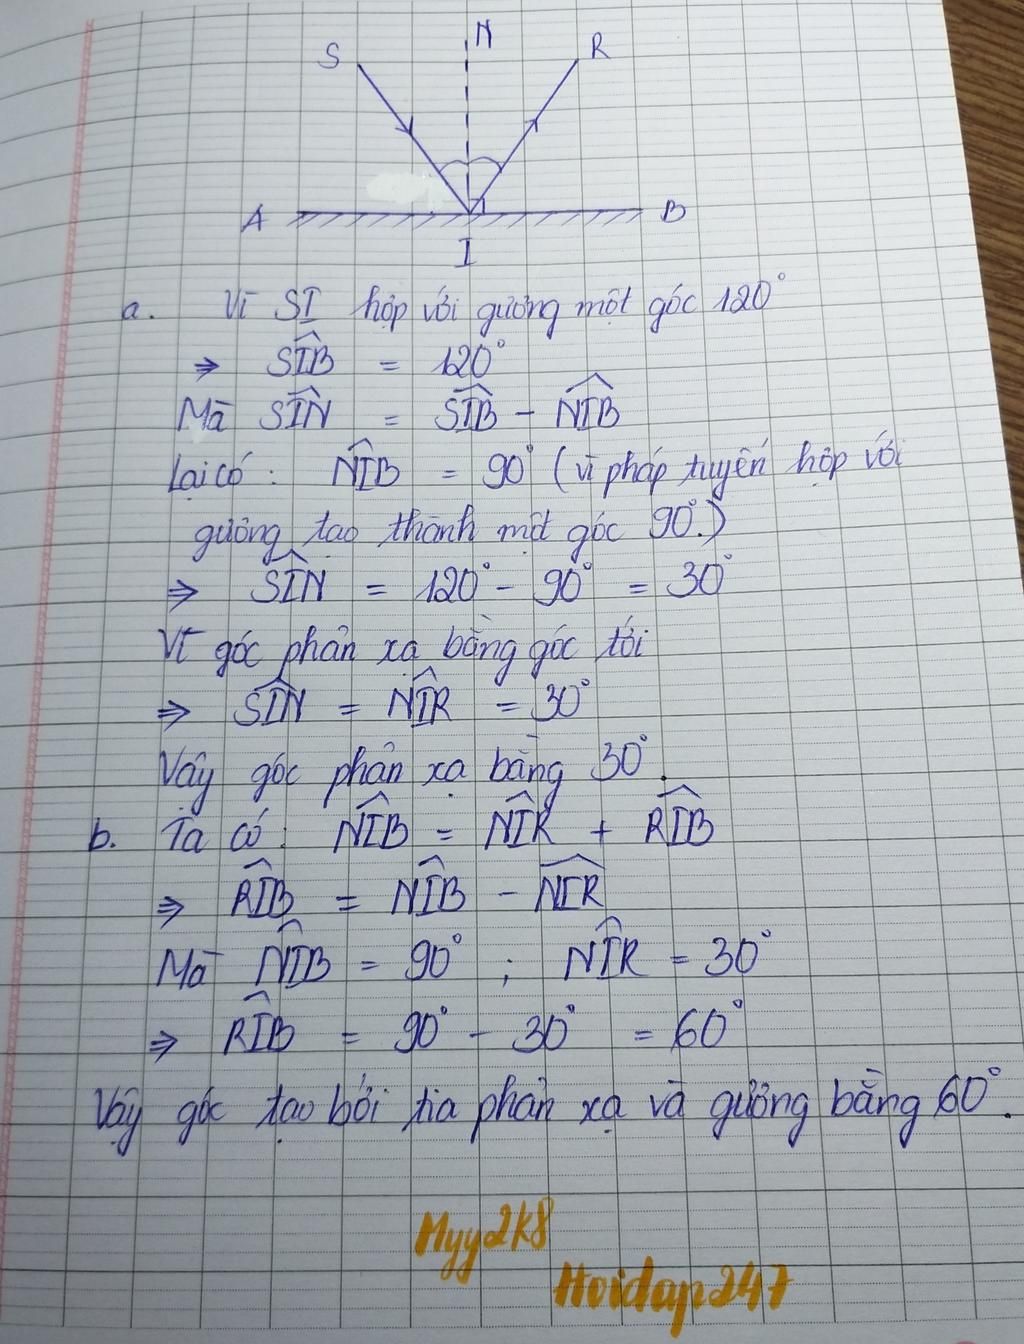 S N R
A B
I
a. Vì SI hợp với gương một góc 120°
⇒ SIB̂ = 120°
Mà SIN̂ = SIB̂ - NIB̂
Lại có: NIB̂ = 90° (vì pháp tuyến hợp với
gương tạo thành một góc 90°.)
⇒ SIN̂ = 120° - 90° = 30°
Vì góc phản xạ bằng góc tới
⇒ SIN̂ = NIR̂ = 30°
Vậy góc phản xạ bằng 30°.
b. Ta có: NIB̂ = NIR̂ + RIB̂
⇒ RIB̂ = NIB̂ - NIR̂
Mà NIB̂ = 90° ; NIR̂ = 30°
⇒ RIB̂ = 90° - 30° = 60°
Vậy góc tạo bởi tia phản xạ và gương bằng 60°.
Myy2k8
Hoidap247